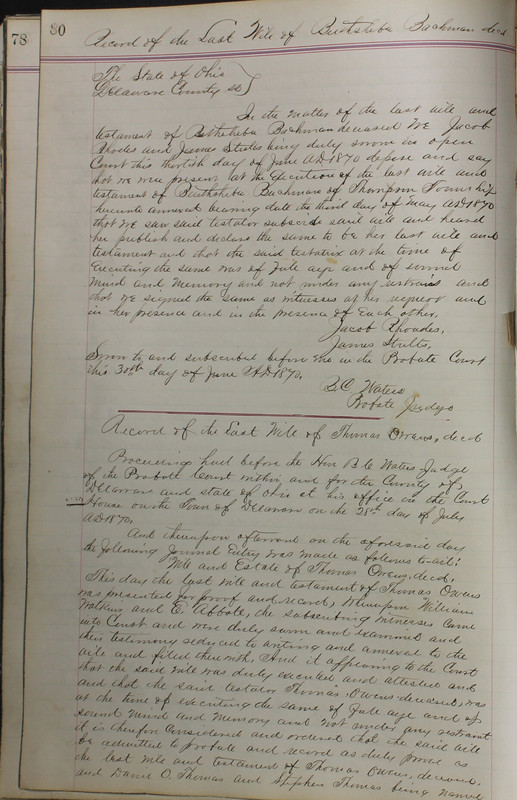 78
80
Record of the Last Will of Buthsheba Bachman decd
The State of Ohio
Delaware County ss
In the matter of the last will and
testament of Bethsheba Bachman deceased We Jacob
Rhodes and James Stults being duly sworn in open
Court this thirtieth day of June AD 1870 depose and say
that we were present at the Execution of the last will and
testament of Buthsheba Bachman of Thompson Township
hereunto annexed bearing date the third day of May AD 1870
that we saw said testator subscribe said will and heard
her publish and declare the same to be her last will and
testament and that the said testatrix at the time of
Executing the same was of full age and of sound
mind and memory and not under any restraint and
that we signed the same as witnesses at her request and
in her presence and in the presence of Each other.
Jacob Rhodes,
James Stults.
Sworn to and subscribed before me in the Probate Court
this 30th day of June AD 1870.
B.C. Waters
Probate Judge
Record of the Last Will of Thomas Owens, decd
Proceedings had before the Hon B.C. Waters Judge
of the Probate Court within and for the County of
Delaware and state of Ohio at his office in the Court
House in the Town of Delaware on the 28th day of July
AD 1870.
And thereupon afterward on the aforesaid day
the following Journal Entry was made as follows to-wit:
Will and Estate of Thomas Owens, decd,
This day the last will and testament of Thomas Owens
was presented for proof and record, whereupon William
Watkins and E. Abbott, the subscribing witnesses came
into Court and were duly sworn and examined and
their testimony reduced to writing and annexed to the
will and filed therewith, And it appearing to the Court
that the said will was duly executed and attested and
and that the said testator Thomas Owens deceased, was
at the time of executing the same of full age and of
sound mind and memory and not under any restraint
it is therefore considered and ordered that the said will
be admitted to probate and record as duly proven as
the last will and testament of Thomas Owens, deceased.
and David O. Thomas and Stephen Thomas being named